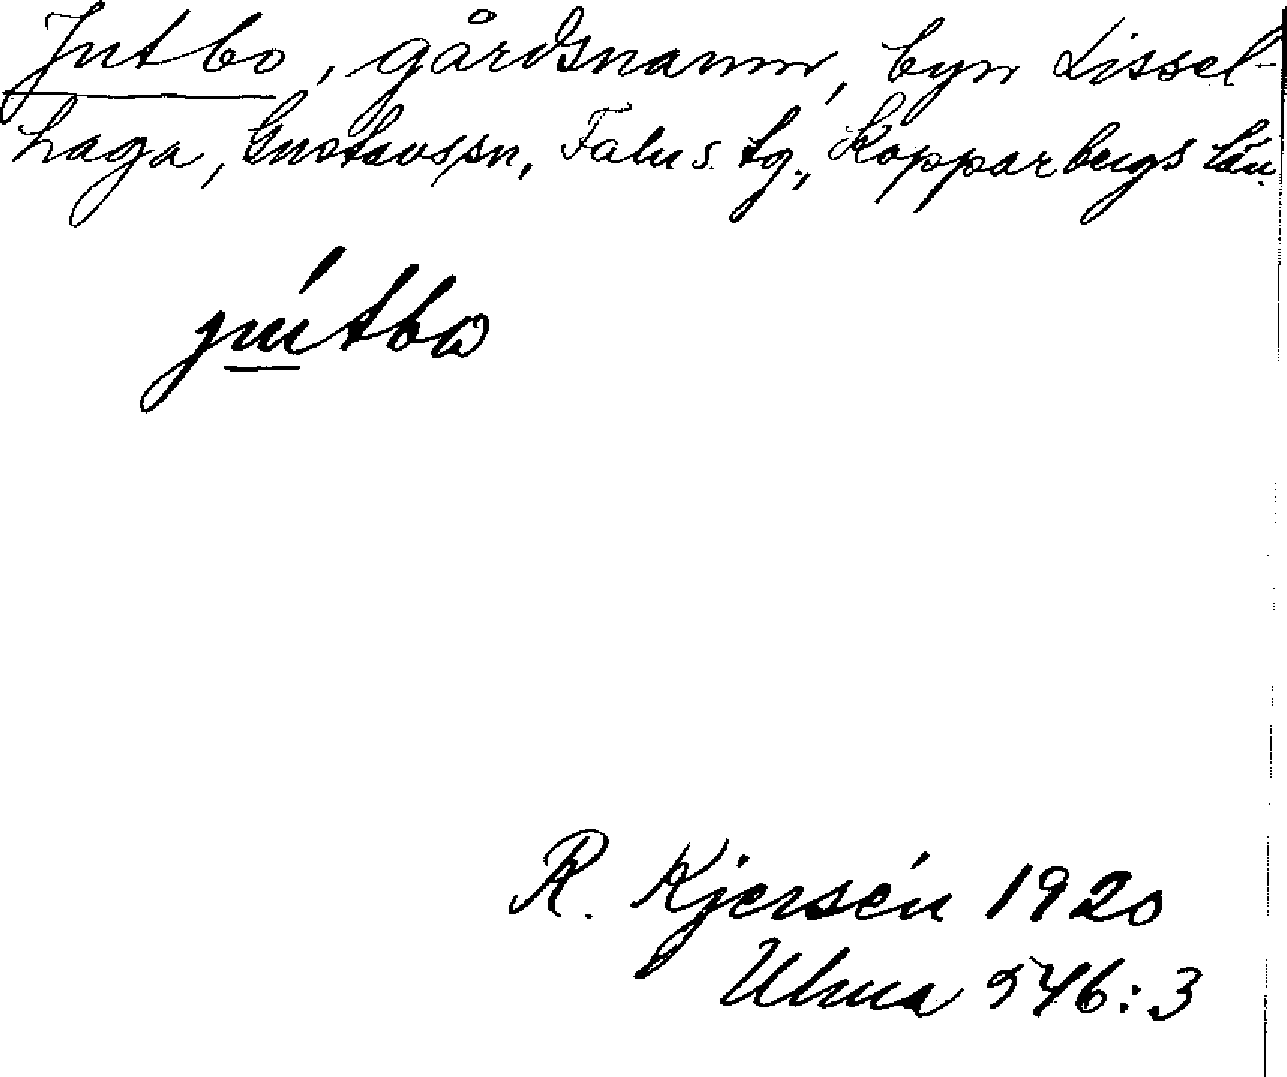 Jutbo, gårdsnamn, byn Lissel-
haga, Gustavs sn, Falu s. tg., Kopparbergs län.
jútbω
R. Kjersén 1920
Ulma 546:3